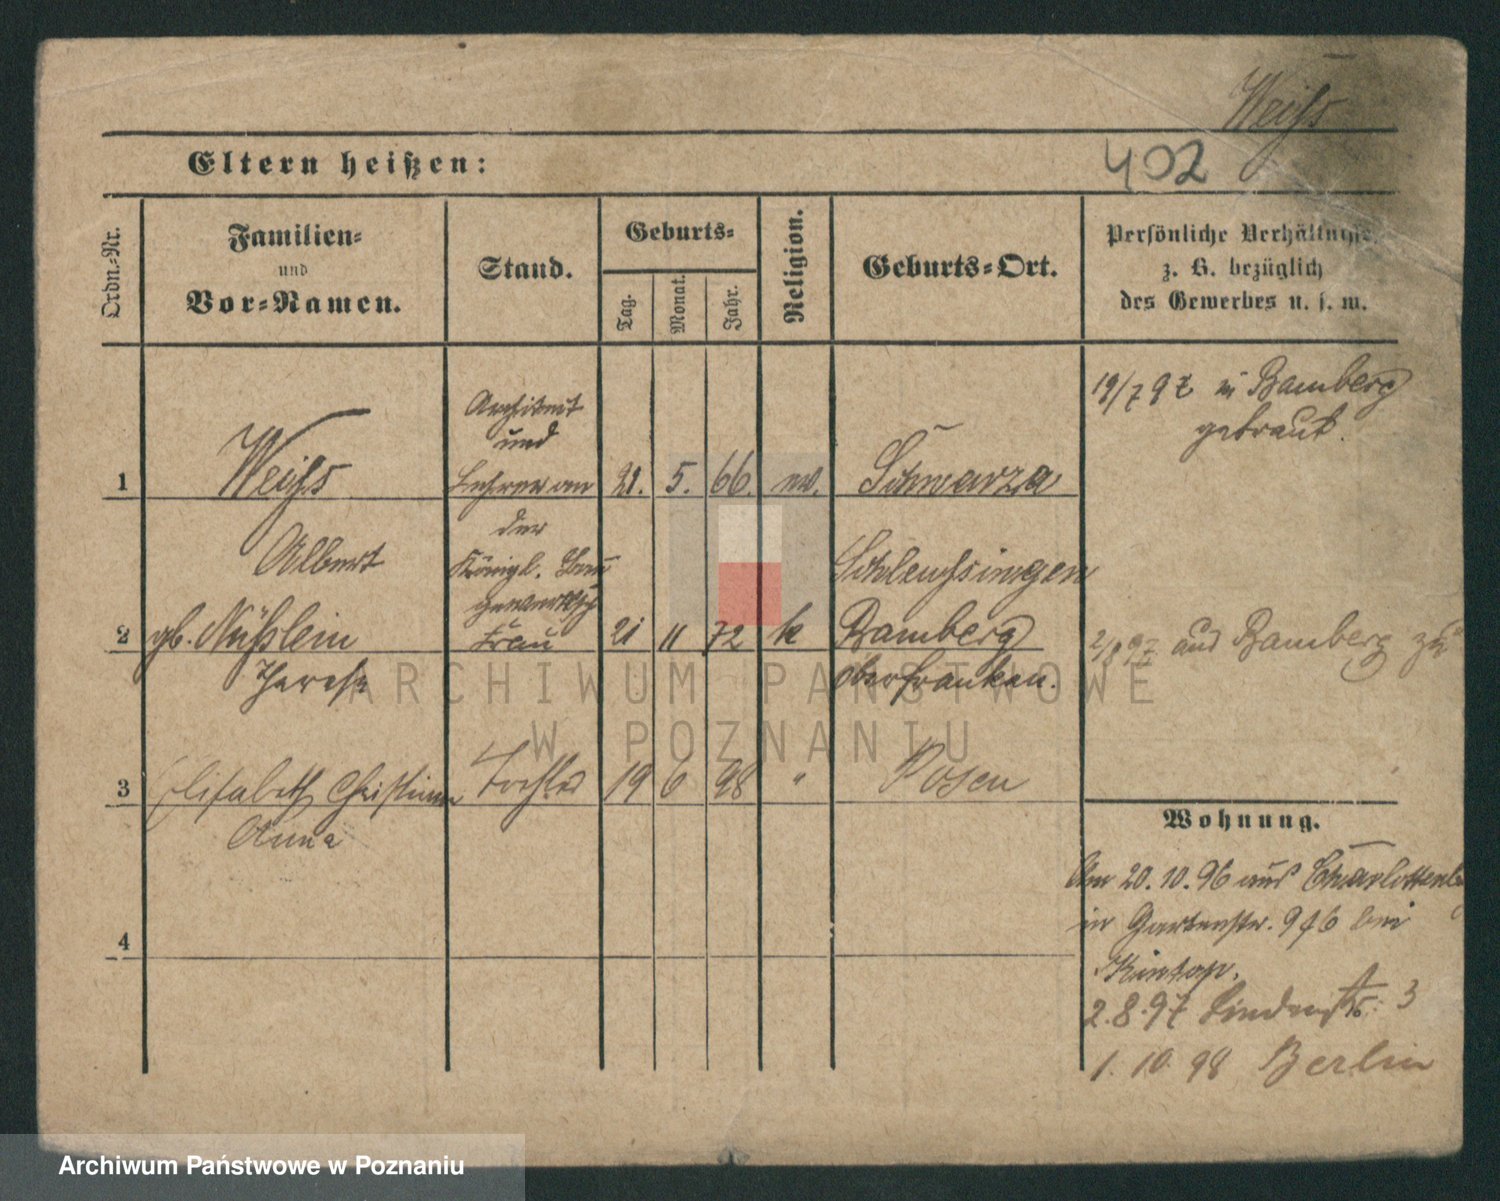 Weiſs
Eltern heißen:
402
Ordn.-Nr.
Familien-
und
Vor-Namen.
Stand.
Geburts-
Tag.
Monat.
Jahr.
Religion.
Geburts-Ort.
Persönliche Verhältnisse
z. B. bezüglich
des Gewerbes u. s. w.
19/7 97 in Bamberg
getraut.
Architect
und
1 Weiſs Lehrer an 21. 5. 66. ev. Schwarza
Albert der
Königl. Bau Schleusingen
gewerksch
2 gb. Nüßlein Frau 21 11 72 k Bamberg
Therese Oberfranken.
2/8 97 aus Bamberg zu
3 Elisabeth Christiane Tochter 19 6 98 " Posen
Anna
4
Wohnung.
Am 20.10.96 aus Charlottenb
in Gartenstr. 9 bei
2.8.97 Lindenstr. 3
1.10.98 Berlin
ARCHIWUM PAŃSTWOWE
W POZNANIU
Archiwum Państwowe w Poznaniu